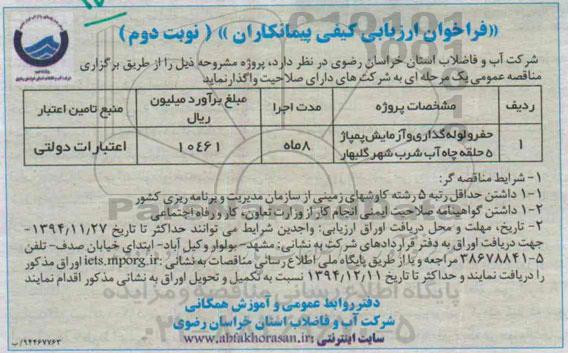 «فراخوان ارزیابی کیفی پیمانکاران» ( نوبت دوم )
شرکت آب و فاضلاب استان خراسان رضوی در نظر دارد، پروژه مشروحه ذیل را از طریق برگزاری
مناقصه عمومی یک مرحله ای به شرکت های دارای صلاحیت واگذار نماید
ردیف مشخصات پروژه مدت اجرا مبلغ برآورد میلیون ریال منبع تامین اعتبار
۱ حفر و لوله گذاری و آزمایش پمپاژ ۵ حلقه چاه آب شرب شهر گلبهار ۸ ماه ۱۰۴۶۱ اعتبارات دولتی
۱- شرایط مناقصه گر:
۱-۱ داشتن حداقل رتبه ۵ رشته کاوشهای زمینی از سازمان مدیریت و برنامه ریزی کشور
۱-۲ داشتن گواهینامه صلاحیت ایمنی انجام کار از وزارت تعاون، کار و رفاه اجتماعی
۲- تاریخ، مهلت و محل دریافت اوراق ارزیابی: واجدین شرایط می توانند حداکثر تا تاریخ ۱۳۹۴,۱۱,۲۷-
جهت دریافت اوراق به دفتر قراردادهای شرکت به نشانی: مشهد- بولوار وکیل آباد- ابتدای خیابان صدف- تلفن
۵-۳۸۶۷۸۸۴۱ مراجعه و یا از طریق پایگاه ملی اطلاع رسانی مناقصات به نشانی: iets.mporg.ir اوراق مذکور
را دریافت نمایند و حداکثر تا تاریخ ۱۳۹۴,۱۲,۱۱ نسبت به تکمیل و تحویل اوراق به نشانی مذکور اقدام نمایند
دفتر روابط عمومی و آموزش همگانی
شرکت آب و فاضلاب استان خراسان رضوی
سایت اینترنتی: www.abfakhorasan.ir
۹۴۴۶۷۷۶۳/ب